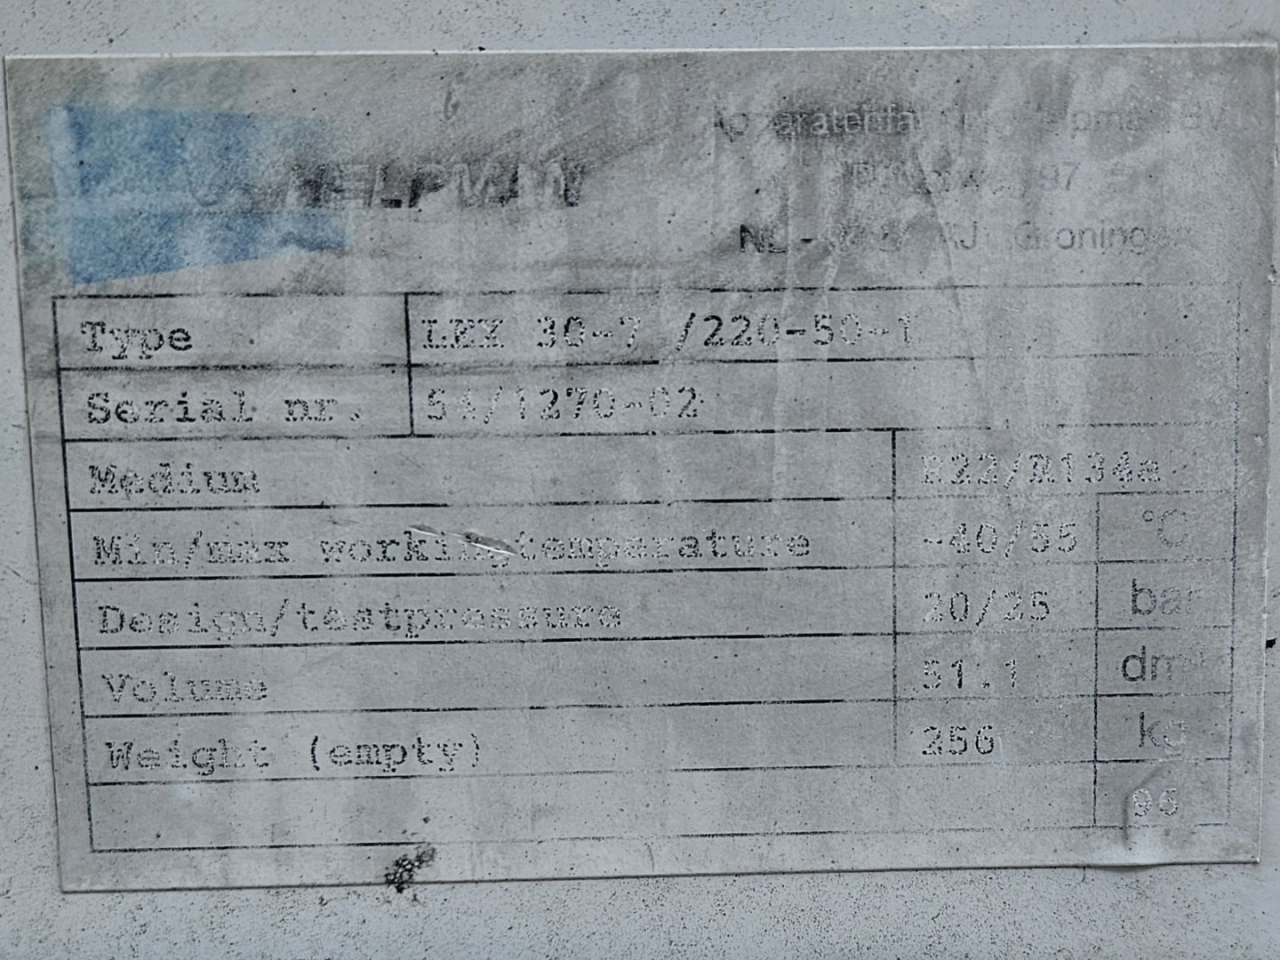 HELPMAN
Type LEX 30-7 /220-50-1
Serial nr. 54/1270-02
Medium R22/R134a
Min/max workingtemperature -40/55 °C
Design/testpressure 20/25 bar
Volume 51.1
Weight (empty) 256 kg